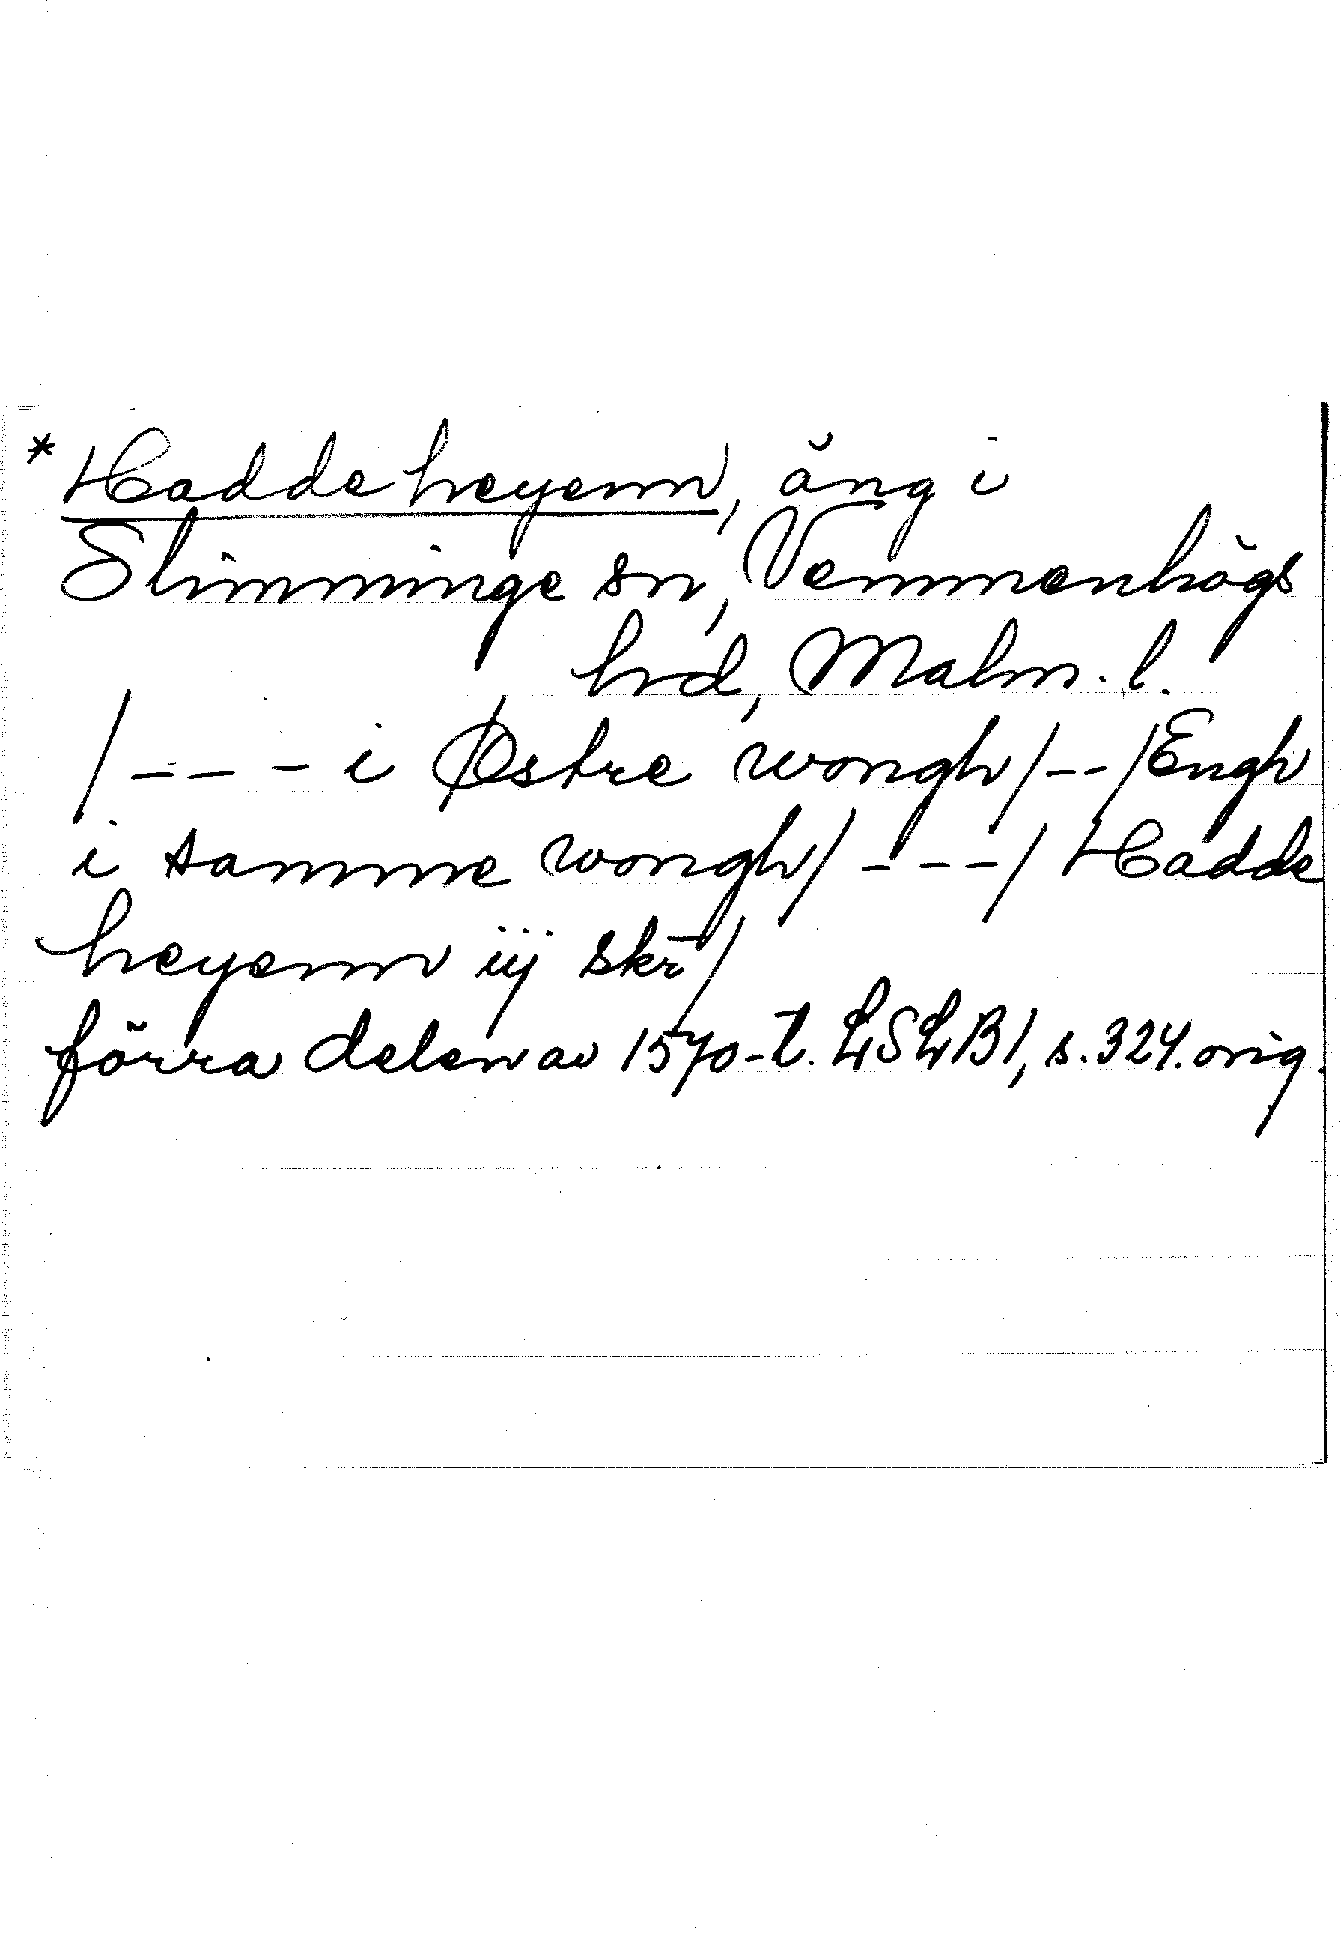 *Hadde heyenn, äng i
Slimminge sn, Vemmenhögs
hrd, Malm. l.
/--- i Østre wongh/--/Engh
i samme wongh/---/Hadde
heyenn iij skr̄/
förra delen av 1570-t. LSLB1, s. 324. orig.